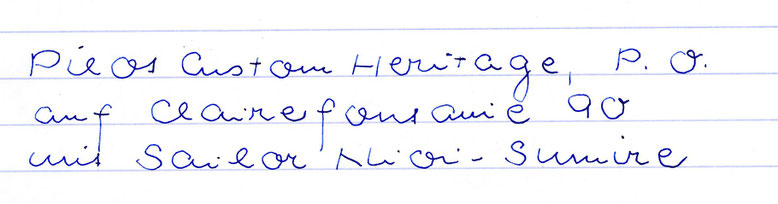 Pilot Custom Heritage, P. O.
auf Clairefontaine 90
mit Sailor Nioi-Sumire